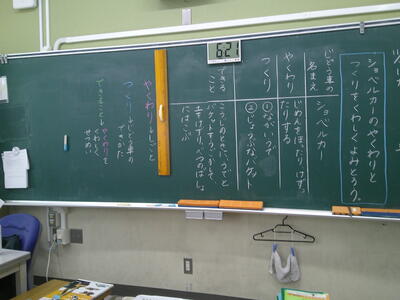 ショベルカーのやくわりと
つくりをくわしくよみとろう。
じどう車の
名まえ
ショベルカー
やくわり
じめんをほったり、けず
たりする
つくり
①ながいうで
②じょうぶなバケット
できる
こと
こうじのときに、うでと
バケットをうごかして
土をけずり、べつのばしょ
にはこぶ
やくわり→しごと
つくり→じどう車の
できかた
できること→やくわりを
くわしく
せつめい